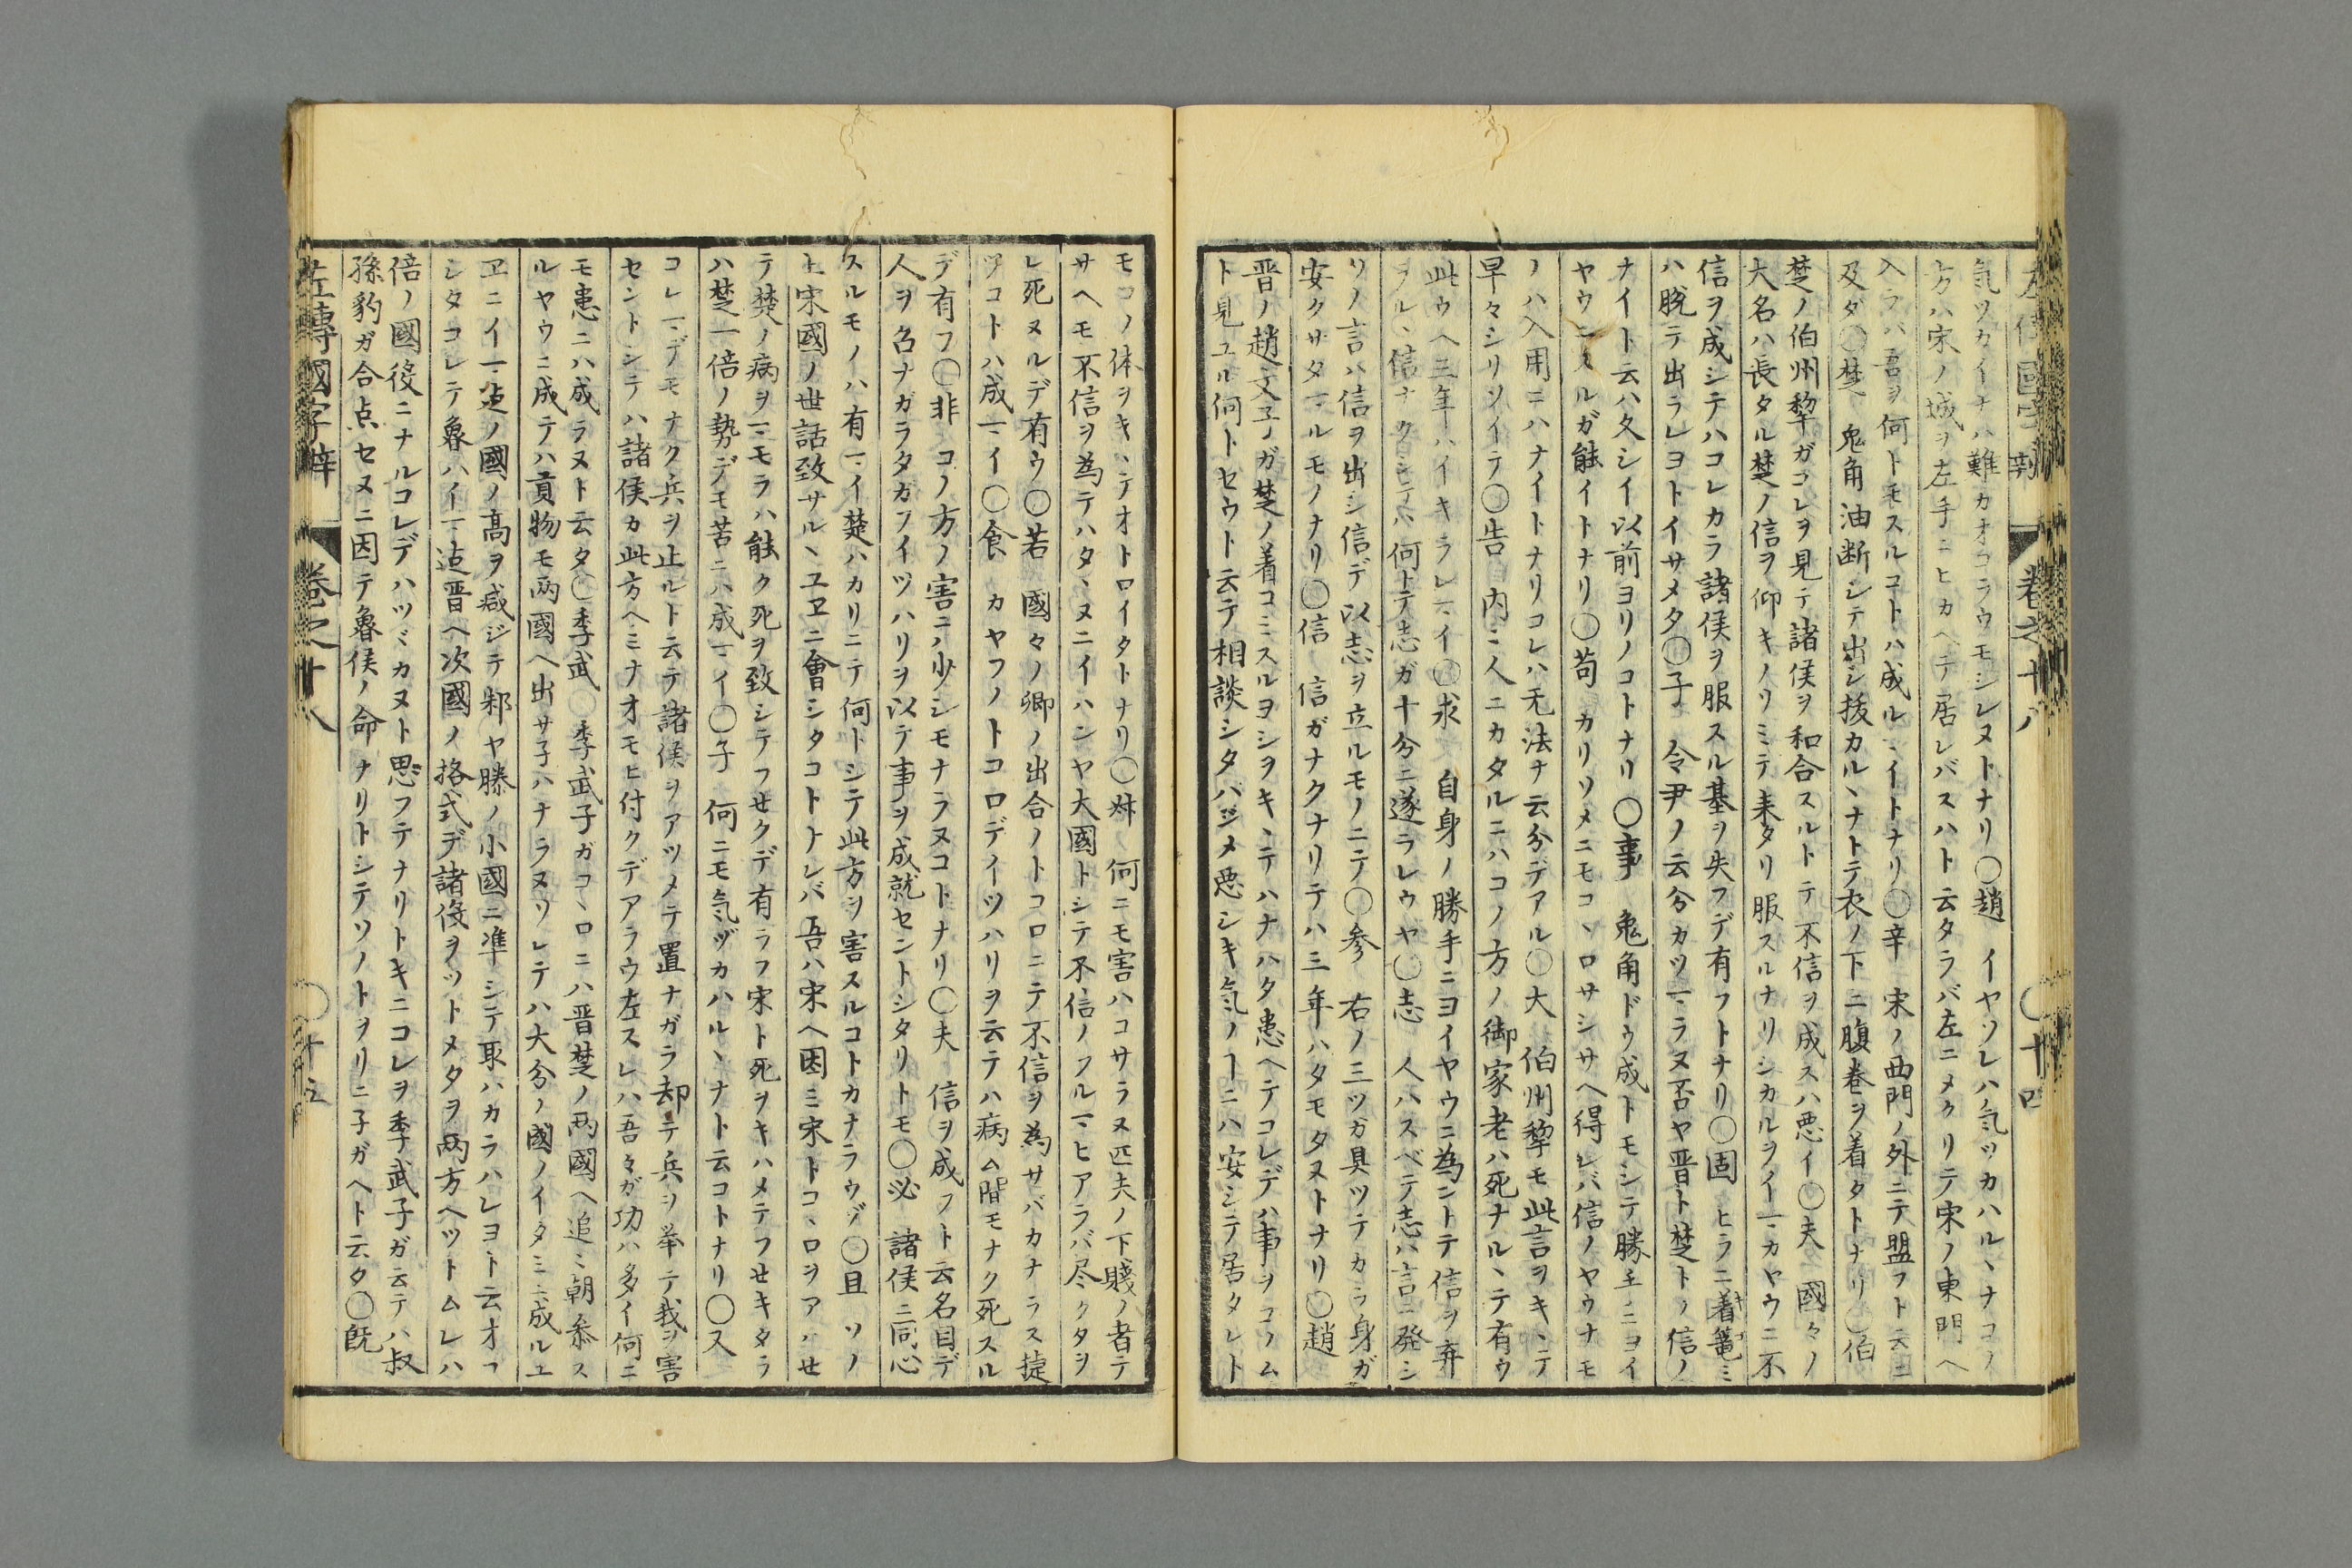 左傳國字辨　卷之十八　〇十四
気ツカイナハ難カオコラウモシレヌトナリ〇趙　イヤソレハ気ツカハルヽナコノ
方ハ宋ノ城ヲ左手ニヒカヘテ居レバスハト云タラバ左ニメクリテ宋ノ東門ヘ
入ラハ吾ヲ何トモスルコトハ成ルマイトナリ〇辛　宋ノ西門ノ外ニテ盟フト云ニ
及ダ〇楚　兎角油断シテ出シ抜カルヽナトテ衣ノ下ニ腹巻ヲ着タトナリ〇伯
楚ノ伯州犂ガコレヲ見テ諸侯ヲ和合スルトテ不信ヲ成スハ悪イ〇夫　國々ノ
大名ハ長タル楚ノ信ヲ仰キノソミテ来タリ服スルナリシカルヲイマカヤウニ不
信ヲ成シテハコレカラ諸侯ヲ服スル基ヲ失フデ有フトナリ〇固　ヒラニ着篭ミ
ハ脱テ出ラレヨトイサメタ〇子　令尹ノ云分カツマラヌ否ヤ晋ト楚トノ信ノ
ナイト云ハ久シイ以前ヨリノコトナリ〇事　兎角ドウ成トモシテ勝手ニヨイ
ヤウニスルガ能イトナリ〇苟　カリソメニモコヽロサシサヘ得レバ信ノヤウナモ
ノハ入用ニハナイトナリコレハ无法ナ云分デアル〇大　伯州犂モ此言ヲキヽテ
早々シリソイテ〇告　内ミ人ニカタルニハコノ方ノ御家老ハ死ナルヽテ有ウ
此ウヘ三年ハイキラレマイ〇求　自身ノ勝手ニヨイヤウニ為ントテ信ヲ弃
ヲルヽ信ナクシテハ何トテ志ガ十分ニ遂ラレウヤ〇志　人ハスベテ志ハ言ニ発シ
ソノ言ハ信ヲ出シ信デ以志ヲ立ルモノニテ〇参　右ノ三ツガ具ツテカラ身ガ
安クサタマルモノナリ〇信　信ガナクナリテハ三年ハタモタヌトナリ〇趙
晋ノ趙文子ガ楚ノ着コミスルヨシヲキヽテハナハタ患ヘテコレデハ事ヲコノム
ト見ユル何トセウト云テ相談シタバジメ悪シキ気ノ丅ニハ安シテ居タレト
モコノ体ヲキヽテオトロイタトナリ〇妹　何ニモ害ハコサラヌ匹夫ノ下賤ノ者テ
サヘモ不信ヲ為テハタヽヌニイハンヤ大國トシテ不信ノフルマヒアラバ尽クタヲ
レ死ヌルデ有ウ〇若　國々ノ卿ノ出合ノトコロニテ不信ヲ為サバカナラス捷
ツコトハ成マイ〇食　カヤフノトコロデイツハリヲ云テハ病ム間モナク死スル
デ有フ〇非　コノ方ノ害ニハ少シモナラヌコトナリ〇夫　信ヲ成フト云名目デ
人ヲ召ナガラタガフイツハリヲ以テ事ヲ成就セントシタリトモ〇必　諸侯ニ同心
スルモノハ有マイ楚ハカリニテ何トシテ此方ヲ害スルコトカナラウゾ〇且　ソノ
上宋國ノ世話致サルヽユヱニ會シタコトナレバ吾ハ宋ヘ因ミ宋トコヽロヲアハせ
テ楚ノ病ヲマモラハ能ク死ヲ致シテフせクデ有ラフ宋ト死ヲキハメテフせキタラ
ハ楚一倍ノ勢デモ苦ニハ成マイ〇子　何ニモ気ヅカハルヽナト云コトナリ〇又
コレマデモナク兵ヲ止ルト云テ諸侯ヲアツメテ置ナガラ却テ兵ヲ举テ我ヲ害
セントシテハ諸侯カ此方ヘミナオモヒ付クデアラウ左スレハ吾々ガ功ハ多イ何ニ
モ患ニハ成ラヌト云タ〇季武　〇季武子ガコヽロニハ晋楚ノ両國ヘ追ミ朝参ス
ルヤウニ成テハ貢物モ両國ヘ出サ子ハナラヌソレテハ大分ノ國ノイタミニ成ルユ
ヱニイマ迠ノ國ノ高ヲ减ジテ邾ヤ滕ノ小國ニ準シテ取ハカラハレヨト云オフ
シタコレテ魯ハイマ迠晋ヘ次國ノ格式デ諸役ヲツトメタヲ両方ヘツトムレハ
倍ノ國役ニナルコレデハツヾカヌト思フテナリトキニコレヲ季武子ガ云テハ叔
孫豹ガ合点セヌニ因テ魯侯ノ命ナリトシテソノトヲリニ子ガヘト云タ〇既
左傳國字辨　卷之十八　〇十五